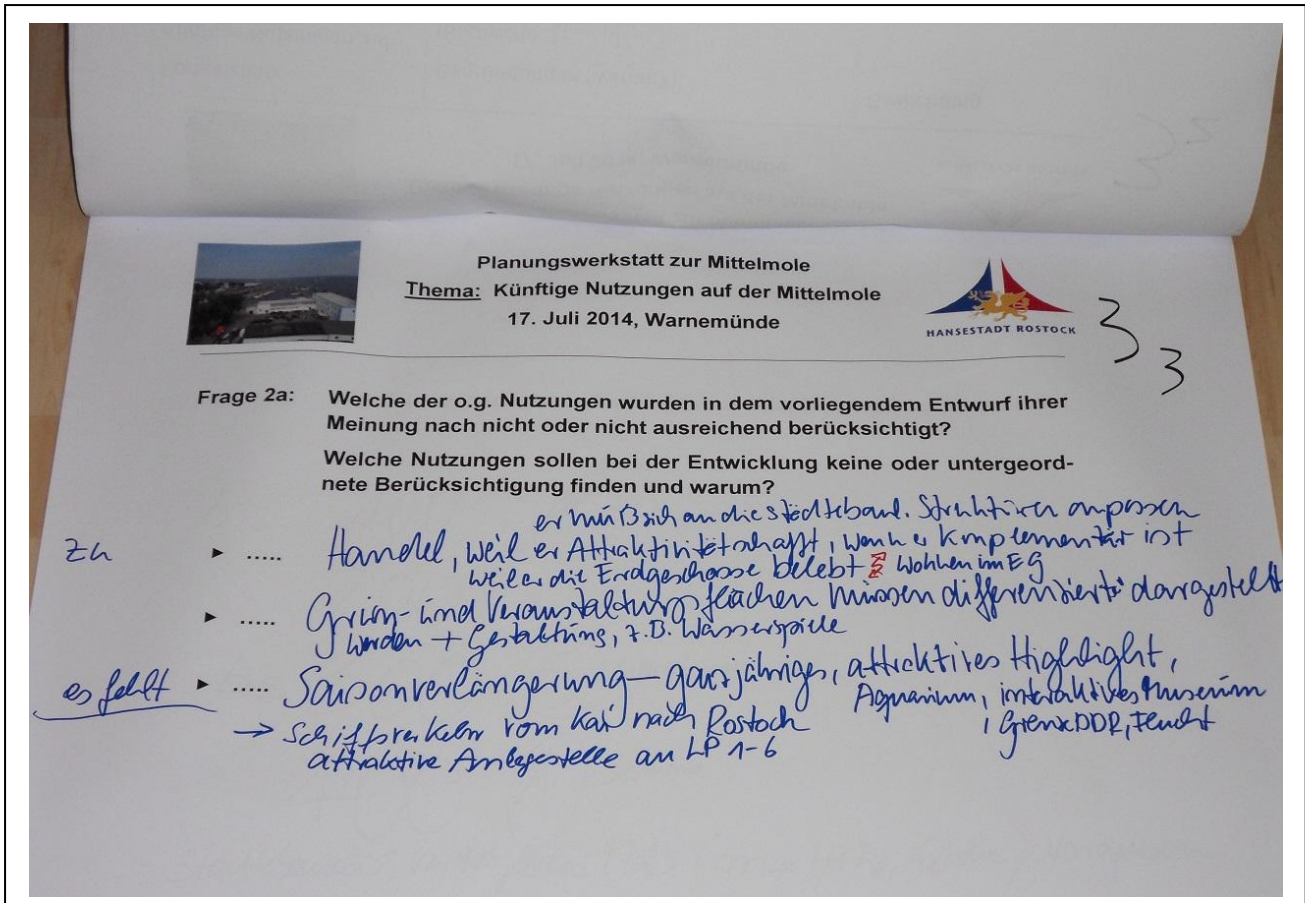 Planungswerkstatt zur Mittelmole
Thema: Künftige Nutzungen auf der Mittelmole
17. Juli 2014, Warnemünde
HANSESTADT ROSTOCK
3
3
Frage 2a: Welche der o.g. Nutzungen wurden in dem vorliegendem Entwurf ihrer
Meinung nach nicht oder nicht ausreichend berücksichtigt?
Welche Nutzungen sollen bei der Entwicklung keine oder untergeord-
nete Berücksichtigung finden und warum?
er muß sich an die städtebaul. Strukturen anpassen
zu ► ..... Handel, weil er Attraktivität schafft, wenn er komplementär ist
weil er die Erdgeschosse belebt Wohnen im EG
► ..... Grün- und Veranstaltungsflächen müssen differenzierter dargestellt
werden + Gestaltung, z.B. Wasserspiele
es fehlt ► ..... Saisonverlängerung - ganzjähriges, attraktives Highlight,
Aquarium, interaktives Museum
→ Schiffsverkehr vom Kai nach Rostock
attraktive Anlegestelle an LP 1-6